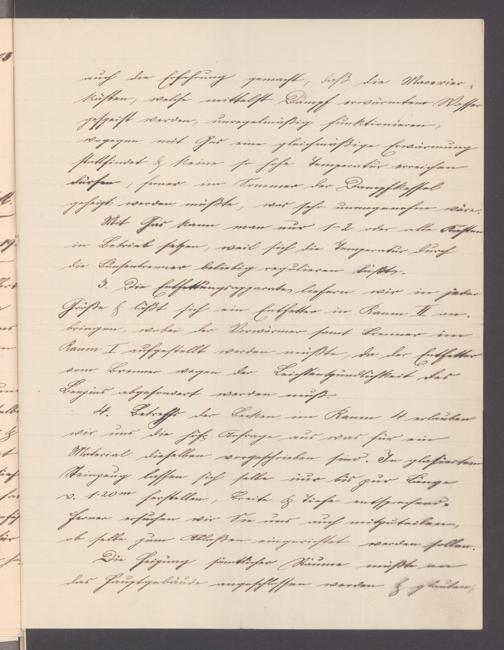 auch die Erfahrung gemacht, daß die Macerier-
kästen, welche mittelst Dampf erwärmtem Wasser
gespeist werden, unregelmäßig funktionieren,
wogegen mit Gas eine gleichmäßige Erwärmung
stattfindet & keine so hohe Temperatur erreichen
dürfen, ferner im Sommer der Dampfkessel
geheizt werden müßte, was sehr unangenehm wäre.
Mit Gas kann man nur 1-2 oder alle Kästen
in Betrieb setzen, weil sich die Temperatur durch
die Bunsenbrenner beliebig regulieren läßt.
3. Die Entfettungsapparate liefern wir in jeder
Größe & läßt sich ein Entfetter in Raum II an-
bringen, wobei der Vorwärmer samt Brenner im
Raum I aufgestellt werden müßte, da der Entfetter
vom Brenner wegen der Leichtentzündlichkeit des
Benzins abgesondert werden muß.
4. Betreffs der Becken im Raum 4 erlauben
wir uns die höfl. Anfrage aus was für ein
Material dieselben vorgeschrieben sind. In glasiertem
Steinzeug lassen sich selbe nur bis zur Länge
v. 1.20 m herstellen, Breite & Tiefe entsprechend.
Ferner ersuchen wir Sie uns auch mitzuteilen,
ob selbe zum Ablaßen eingerichtet werden sollen.
Die Heizung sämtlicher Räume müßte an
das Hauptgebäude angeschlossen werden & glauben